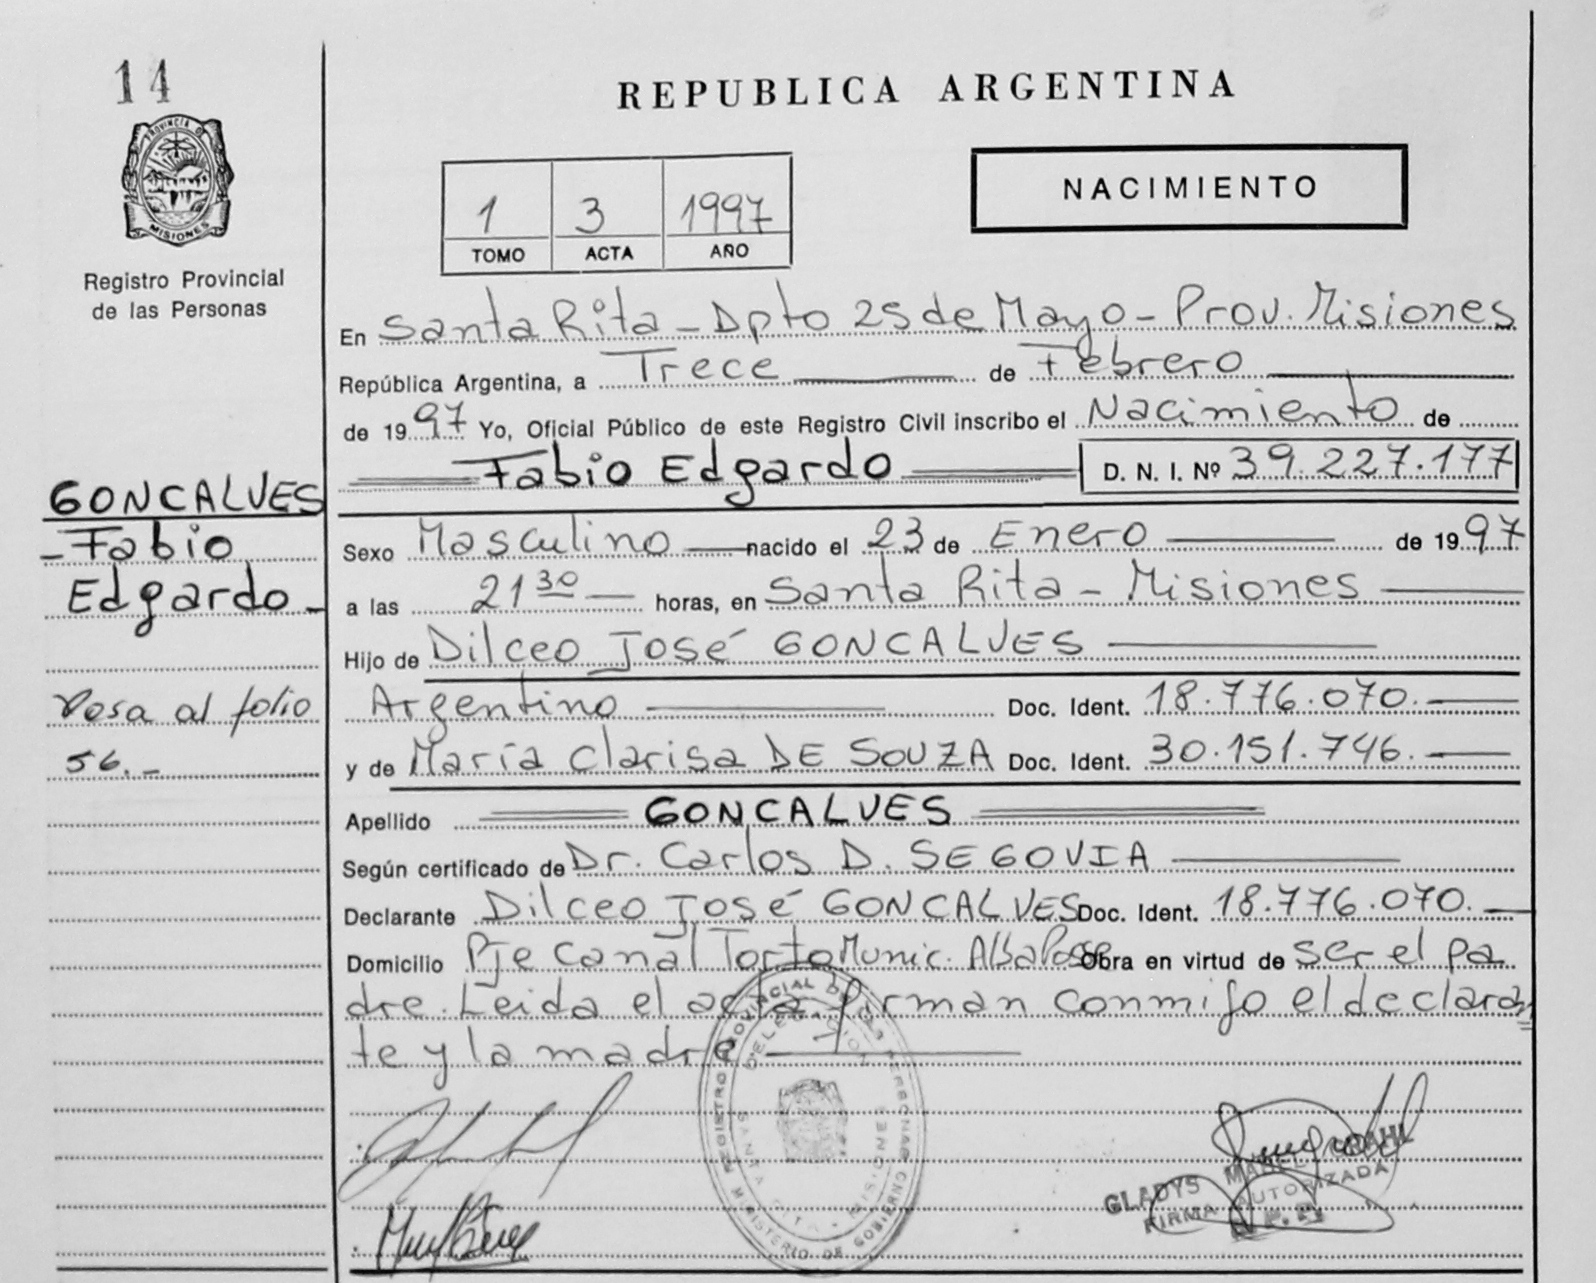 14
PROVINCIA DE
MISIONES
Registro Provincial
de las Personas
REPUBLICA ARGENTINA
1 3 1997
TOMO ACTA AÑO
NACIMIENTO
En Santa Rita - Dpto 25 de Mayo - Prov. Misiones
República Argentina, a Trece de Febrero
de 1997 Yo, Oficial Público de este Registro Civil inscribo el Nacimiento de
Fabio Edgardo D. N. I. Nº 39.227.177
GONCALVES
- Fabio
Edgardo -
Sexo Masculino nacido el 23 de Enero de 1997
a las 21 30 horas, en Santa Rita - Misiones
Hijo de Dilceo José GONCALVES
Pasa al folio
56.-
Argentino Doc. Ident. 18.776.070.
y de María Clarisa DE SOUZA Doc. Ident. 30.151.746.
Apellido GONCALVES
Según certificado de Dr. Carlos D. SEGOVIA
Declarante Dilceo José GONCALVES Doc. Ident. 18.776.070.
Domicilio Pje Canal Torto Munic. Obra en virtud de ser el pa
dre. Leida el acta firman conmigo el declaran
te y la madre
REGISTRO PROVINCIAL DE LAS PERSONAS
DELEGACION
SANTA RITA - MISIONES
MINISTERIO DE GOBIERNO
GLADYS MABEL
FIRMA AUTORIZADA